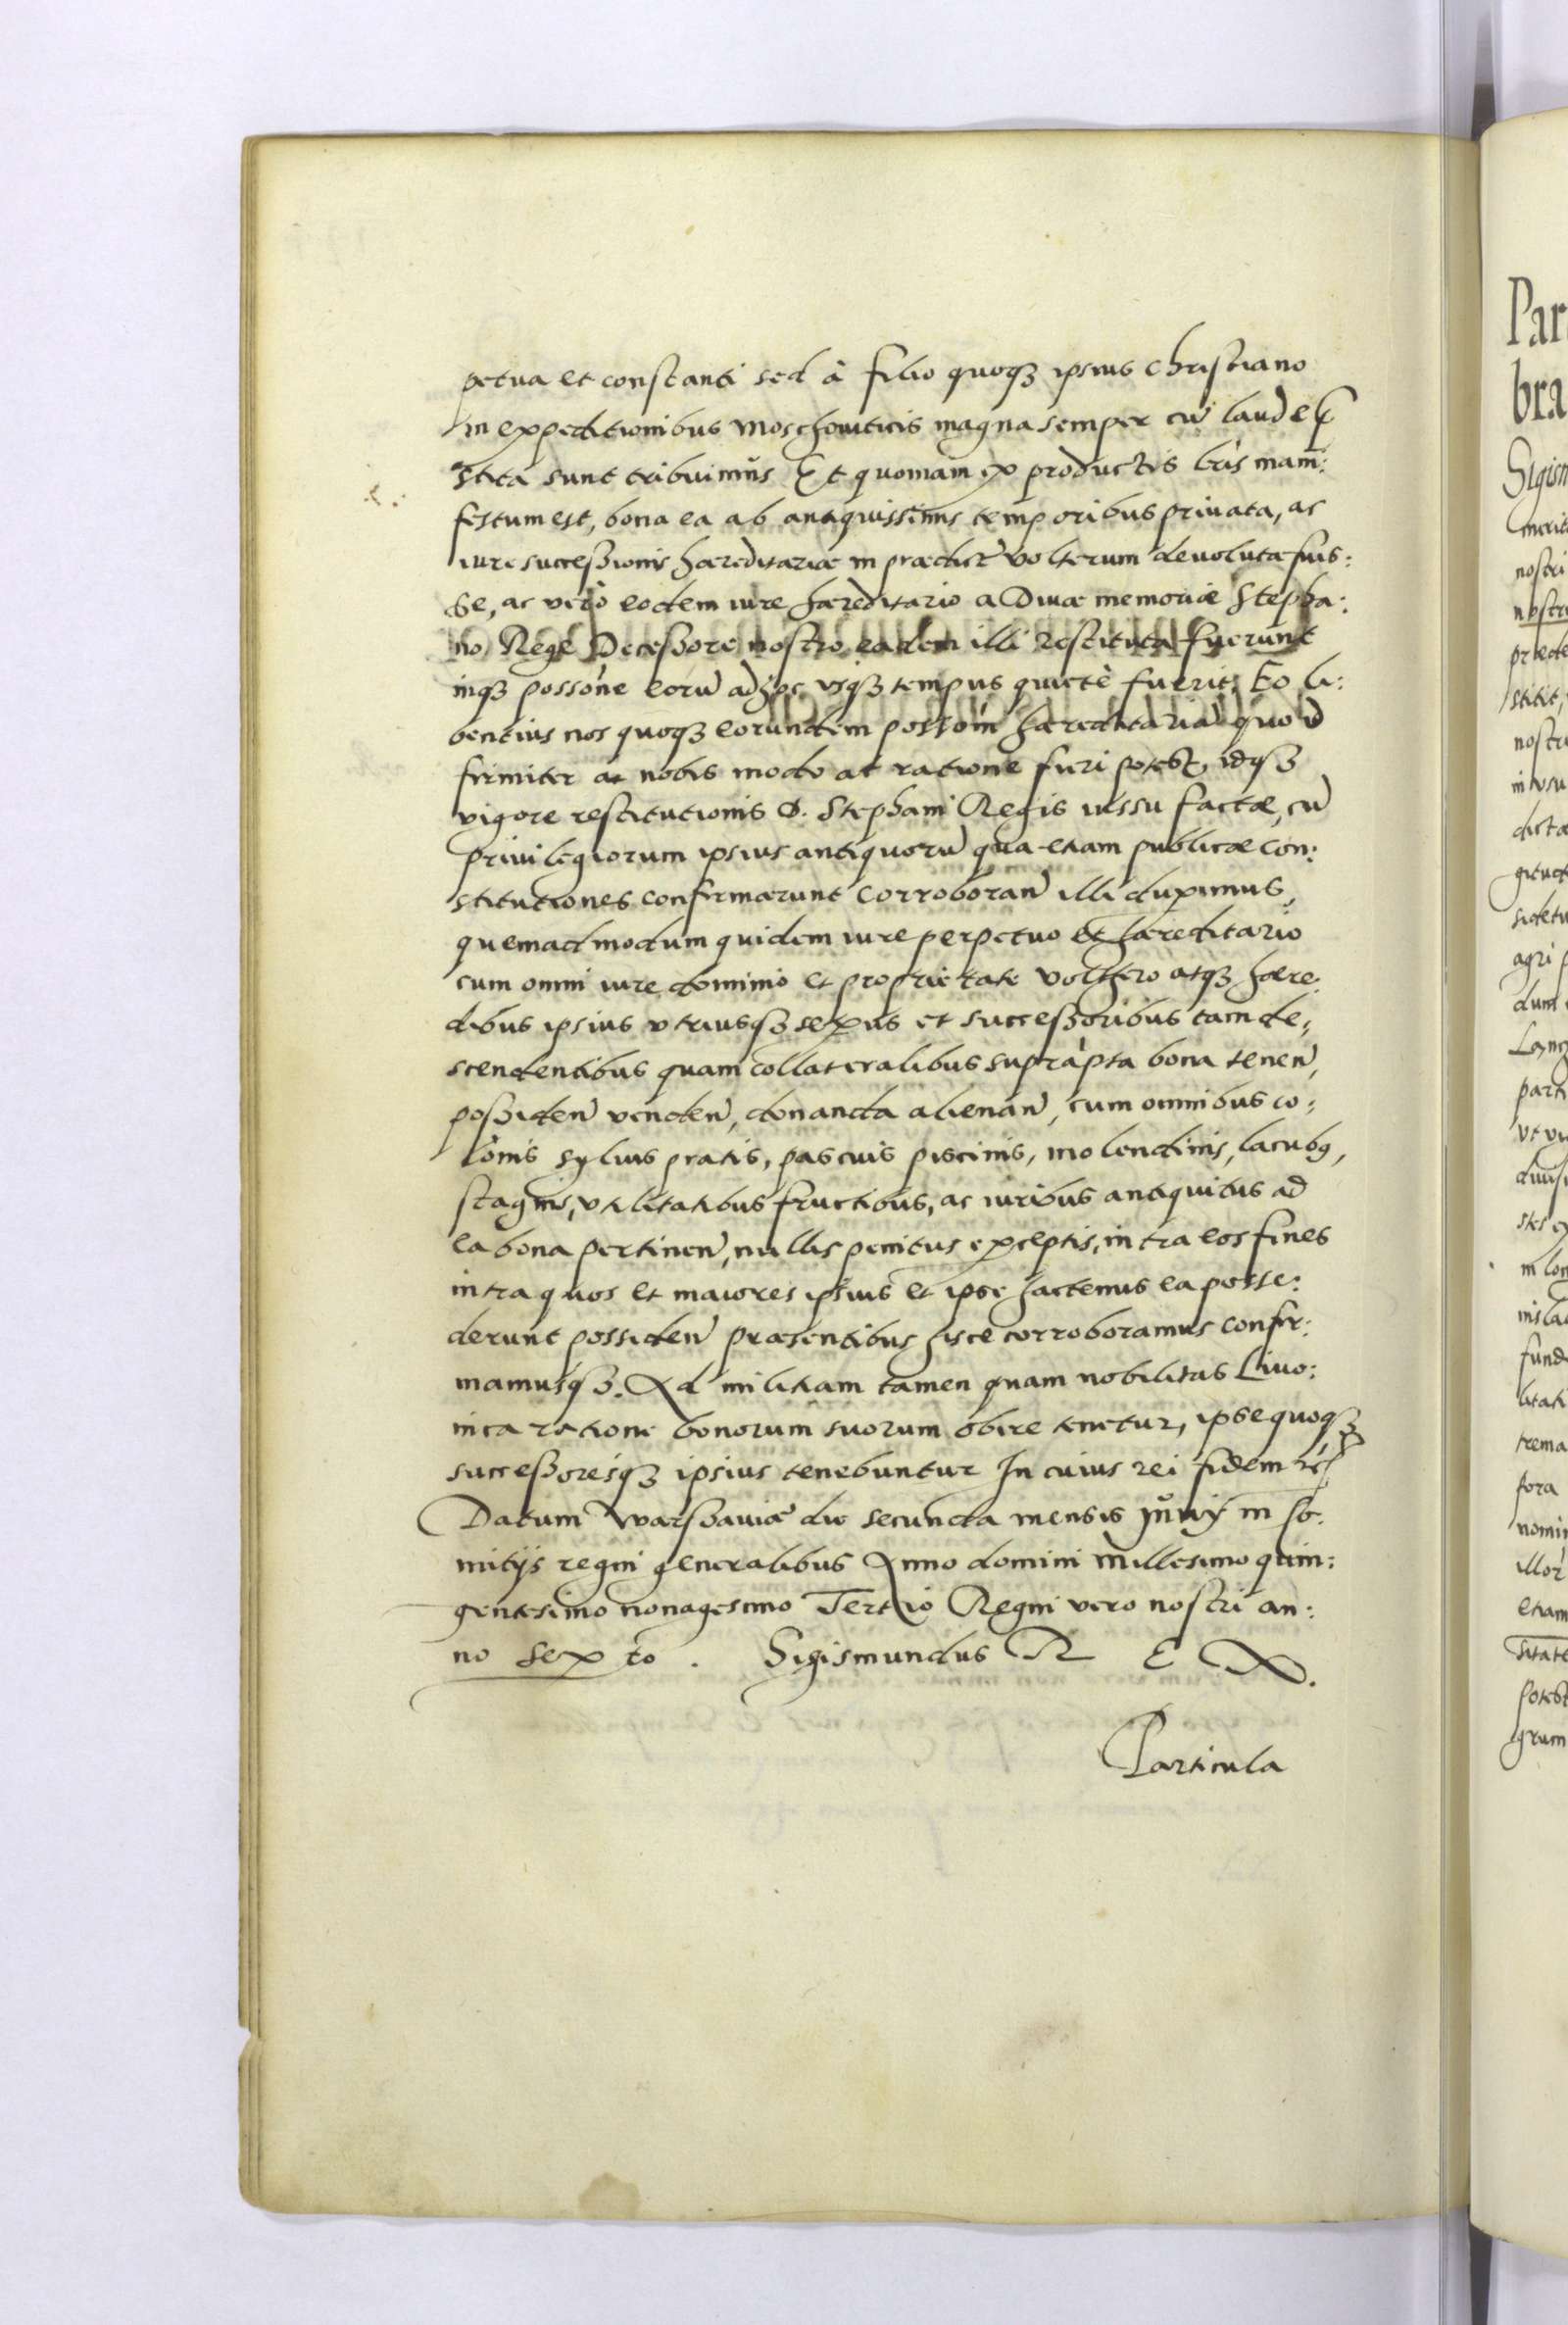 petua et constanti sed à filio quoqȝ ipsius Christiano
in expeditionibus Moschoviticis magna semper cū laude
stita sunt tribuimus Et quoniam ex productis lrīs mani:
festum est, bona ea ab antiquissimis temporibus priuata, ac
iure successionis hæreditariæ in prædict̄ Volterum deuoluta fuis:
se, ac vero eodem iure hæreditario a Diuæ memoriæ Stepha:
no Rege Decessore nostro eadem illi restituta fuerunt
inqȝ possōne eorū adhoc vsqȝ tempus quietè fuerit, Eo li:
bentius nos quoqȝ eorundem possōm hæreditariā quod
firmiter a nobis modo ac ratione fieri potest, idqȝ
vigore restitutionis D. Stephani Regis iussu factæ, cū
priuilegiorum ipsius antiquorū qua etiam publicæ con:
stitutiones confirmarunt corroboran̄ illi duximus,
quemadmodum quidem iure perpetuo et hæreditario
cum omni iure dominio et proprietate Volthero atqȝ hære:
dibus ipsius vtriusqȝ sexus et successoribus tam de,
scendentibus quam collateralibus suprapta bona tenen̄,
possiden̄ venden̄, donanda alienan̄, cum omnibus co,
lonis syluis pratis, pascuis piscinis, molendinis, lacubꝫ,
stagnis, vtilitatibus fructibus, ac iuribus antiquitus ad
ea bona pertinen̄, nullis penitus exceptis, intra eos fines
intra quos et maiores ipsius et ipse hactenus ea posse:
derunt possiden̄ præsentibus hisce corroboramus confir:
mamusqȝ. Ad militiam tamen quam nobilitas Liuo:
nica ratione bonorum suorum obire tenetur, ipse quoqȝ
successoresqȝ ipsius tenebuntur In cuius rei fidem
Datum Warssauiæ die secunda mensis Junij in Co
mitijs regni generalibus Anno domini Millesimo quin:
gentesimo nonagesimo Tertio Regni vero nostri an:
no sexto. Sigismundus R E X.
Particula